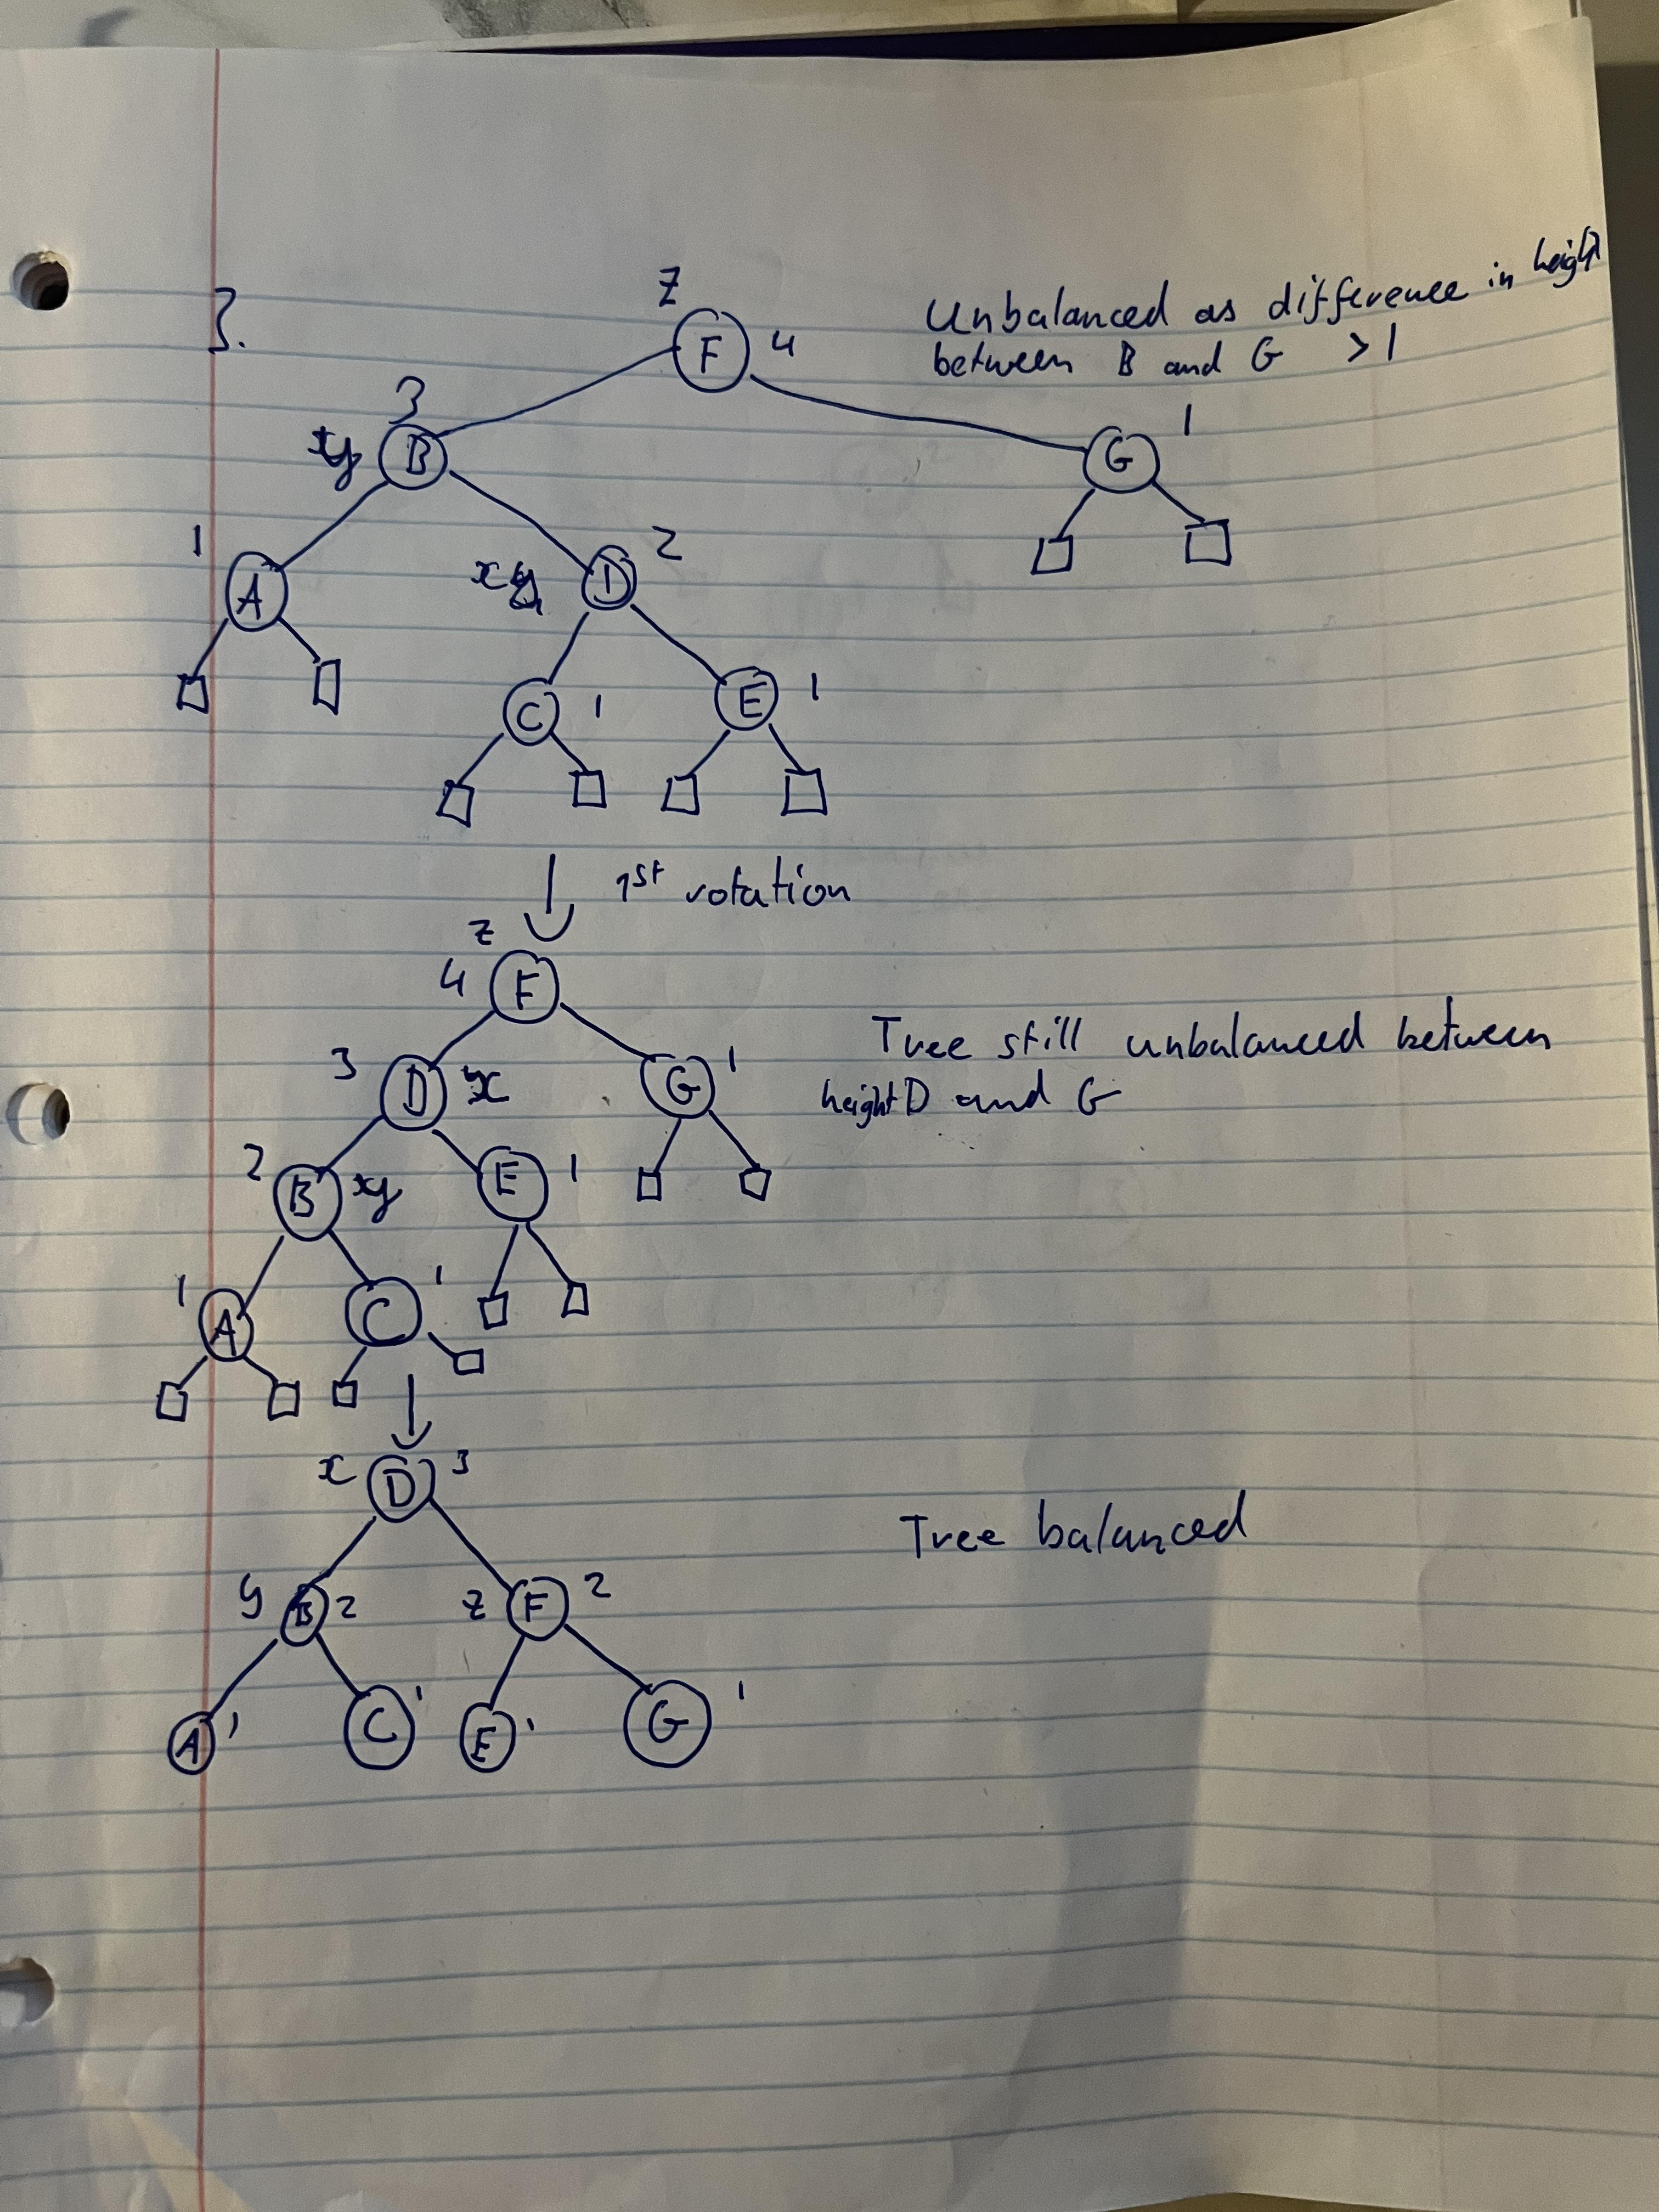 3.
Z
F 4
Unbalanced as difference in height
between B and G >1
3
B
G 1
1
A
x
D 2
C 1
E 1
1st rotation
Z
4 F
Tree still unbalanced between
height D and G
3 D x
G 1
2 B y
E 1
1 A
C 1
x D 3
Tree balanced
y B 2 Z F 2
A 1 C 1 E 1 G 1